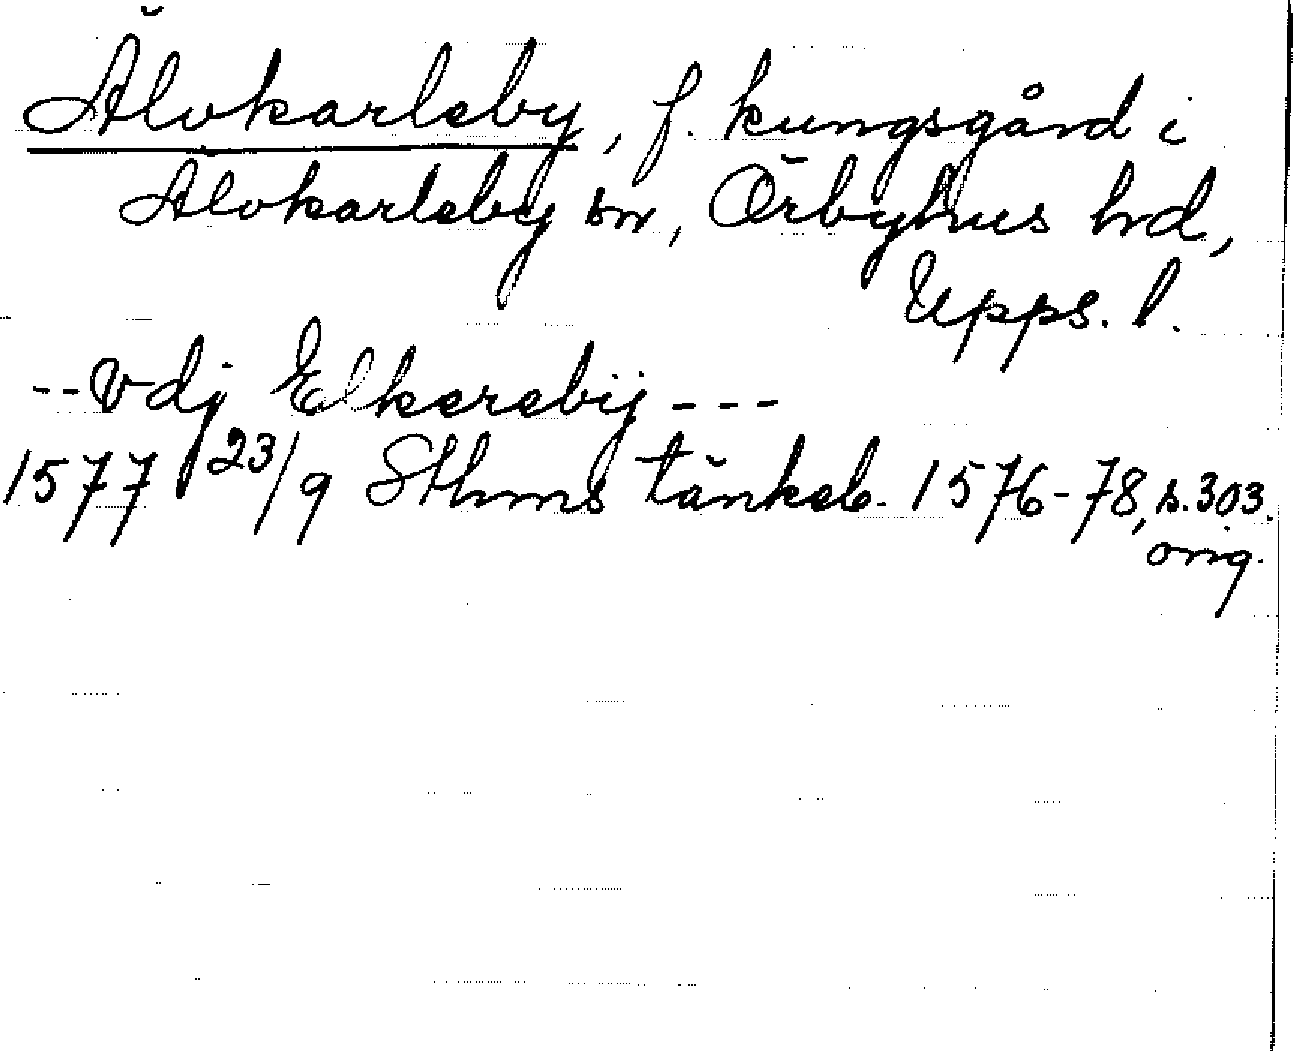 Älvkarleby, f. kungsgård i
Älvkarleby sn, Örbyhus hrd,
Upps. l.
--vdj Elkareby̋ ---
1577 23/9 Sthms tänkeb. 1576-78, s. 303.
orig.